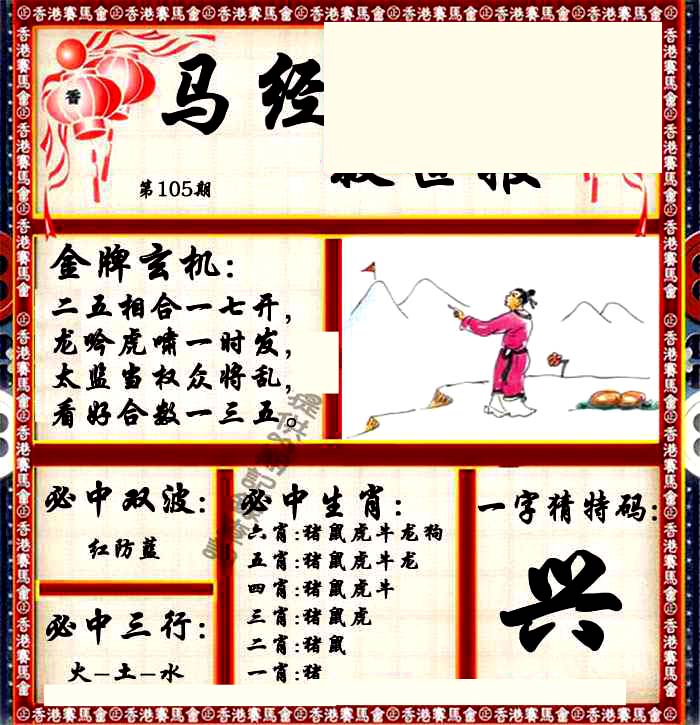 ㊣香港賽馬會㊣香港賽馬會㊣香港賽馬會㊣香港賽馬會㊣香港賽馬會㊣香港賽馬會㊣香港賽馬會㊣
香
马经
第105期
金牌玄机:
二五相合一七开,
龙吟虎啸一时发,
太监当权众将乱,
看好合数一三五。
必中双波:
红防蓝
必中三行:
火-土-水
必中生肖:
六肖:猪鼠虎牛龙狗
五肖:猪鼠虎牛龙
四肖:猪鼠虎牛
三肖:猪鼠虎
二肖:猪鼠
一肖:猪
一字猜特码:
兴
㊣香港賽馬會㊣香港賽馬會㊣香港賽馬會㊣香港賽馬會㊣香港賽馬會㊣香港賽馬會㊣香港賽馬會㊣